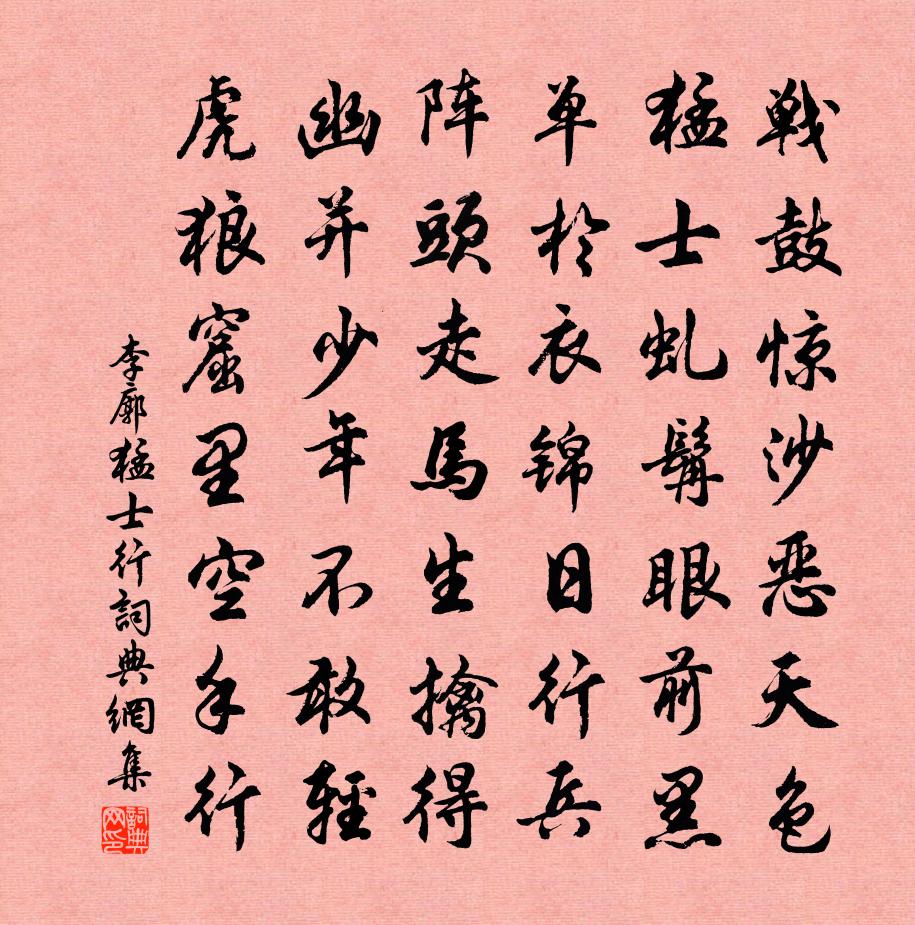 戦鼓惊沙恶天色
猛士虬髯眼前黑
单於衣锦日行兵
阵頭走馬生擒得
幽并少年不敢輕
虎狼窟里空手行
李廓猛士行詞典網集
詞典网印